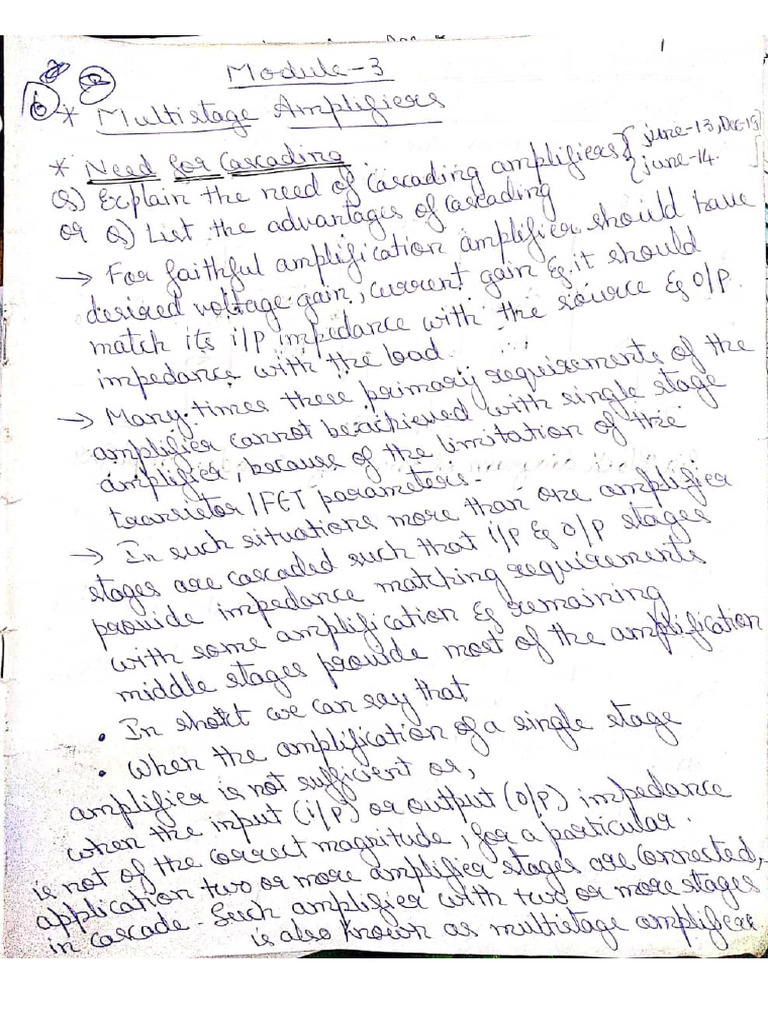 1
Module-3
6 * Multistage Amplifiers
* Need for Cascading
Q) Explain the need of Cascading amplifiers { june-13, Dec-15
or Q) List the advantages of cascading { june-14.
→ For faithful amplification amplifier should have
desired voltage gain, current gain & it should
match its i/p impedance with the source & o/p
impedance with the load.
→ Many times these primary requirements of the
amplifier cannot be achieved with single stage
amplifier, because of the limitation of the
transistor/FET parameters.
→ In such situations more than one amplifier
stages are cascaded such that i/p & o/p stages
provide impedance matching requirements
with some amplification & remaining
middle stages provide most of the amplification
• In short we can say that
• When the amplification of a single stage
amplifier is not sufficient or,
when the input (i/p) or output (o/p) impedance
is not of the correct magnitude, for a particular
application two or more amplifier stages are connected,
in cascade. Such amplifier with two or more stages
is also known as multistage amplifier